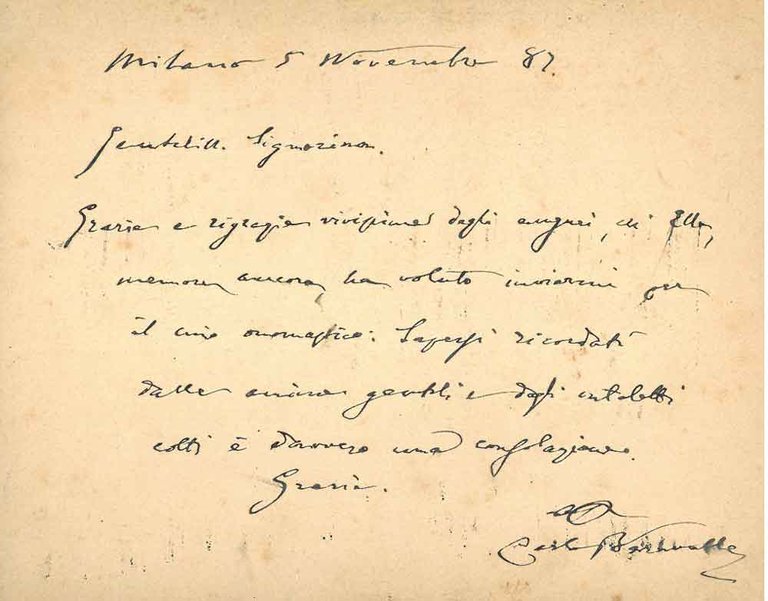 Milano 5 Novembre 87.
Gentiliss. Signorina.
Grazie e rigrazie vivissime dagli auguri, di Ella,
memore ancora, ha voluto inviarmi per
il mio onomastico: Sapersi ricordati
dalle anime gentili e dagli intelletti
colti è davvero una consolazione.
Grazie.
Carlo Baravalle